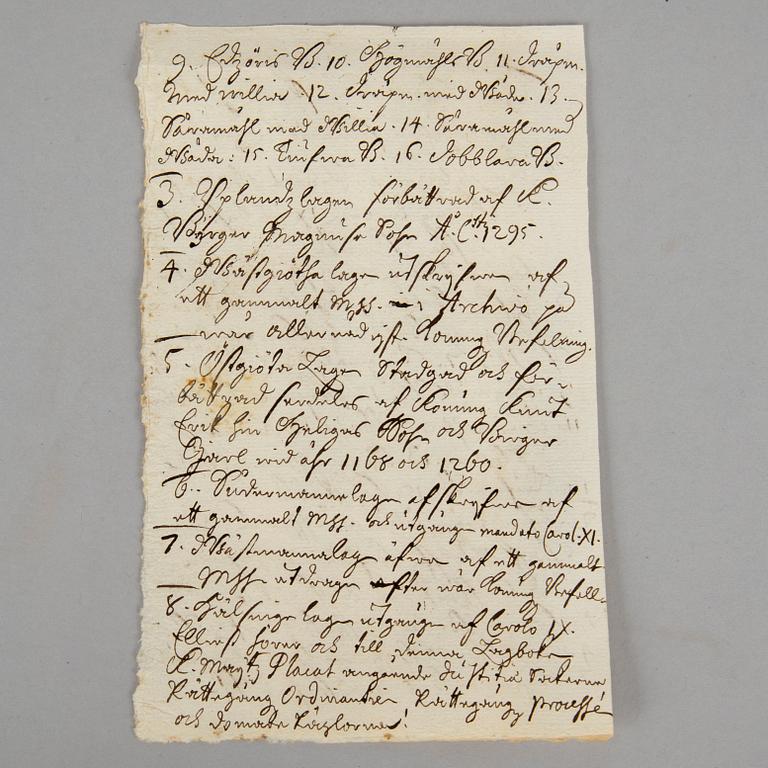 9. Edzöris B. 10. Högmåhls B. 11. Dråpm.
med willia. 12. Dråpm. med Wåda. 13.
Såramåhl med Willia. 14. Såramåhl med
Wåda. 15. Tiufwa B. 16. Dobblara B.
3. Uplandz lagen förbättrad af K.
Börger Magnuse Son A:o C.sti 1295.
4. Wästgiötha lagen utskrifwen af
ett gammalt Mss. i Archivo på
wår allernådigste Konung Befelning.
5. Östgiöta Lagen Stadgad och för-
bättrad serdeles af Konung Knut
Erik hin Heliges Son och Birger
Jarl wid åhr 1168 och 1260.
6. Sudermanne lagen afskrifwen af
ett gammalt Mss. och utgången mandato Carol. XI.
7. Wästmannalag äfwen af ett gammalt
Mss utdragen efter wår Konung Befell-
8. Hälsinge lagen utgången af Carolo IX.
Ellies hörer och till denna Lagboken
K. May:tz Placat angående Justitiæ Sakerne
Rättegång Ordinantie, Rättegång processé
och domare Räglorna!